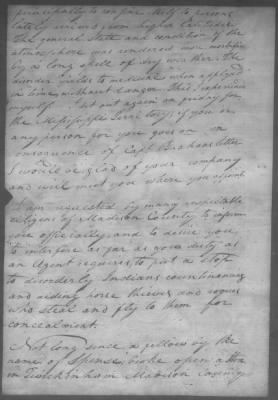 principally to confine itself to persons
lately arrived from higher latitudes.
The general State and condition of the
atmosphere was rendered more morbific
by a long spell of dry weather. The
disorder yields to medicine when applied
in time without danger. This I experienced
myself. I set out again on friday for
the Mississippi Territory, if you or
any person for you goes on in
consequence of Capt. Brahans letter
I would be glad of your company
and will meet you where you appoint.
I am requested by many respectable
citizens of Madison County to inform
you officially, and to desire you
to interfere as far as your duty as
an Agent requires, to put a stop
to disorderly Indians countenancing
and aiding horse thieves and rogues
who steal and fly to them for
concealment.
Not long since a fellow by the
name of Spence broke open a store
in Twickenham Madison County